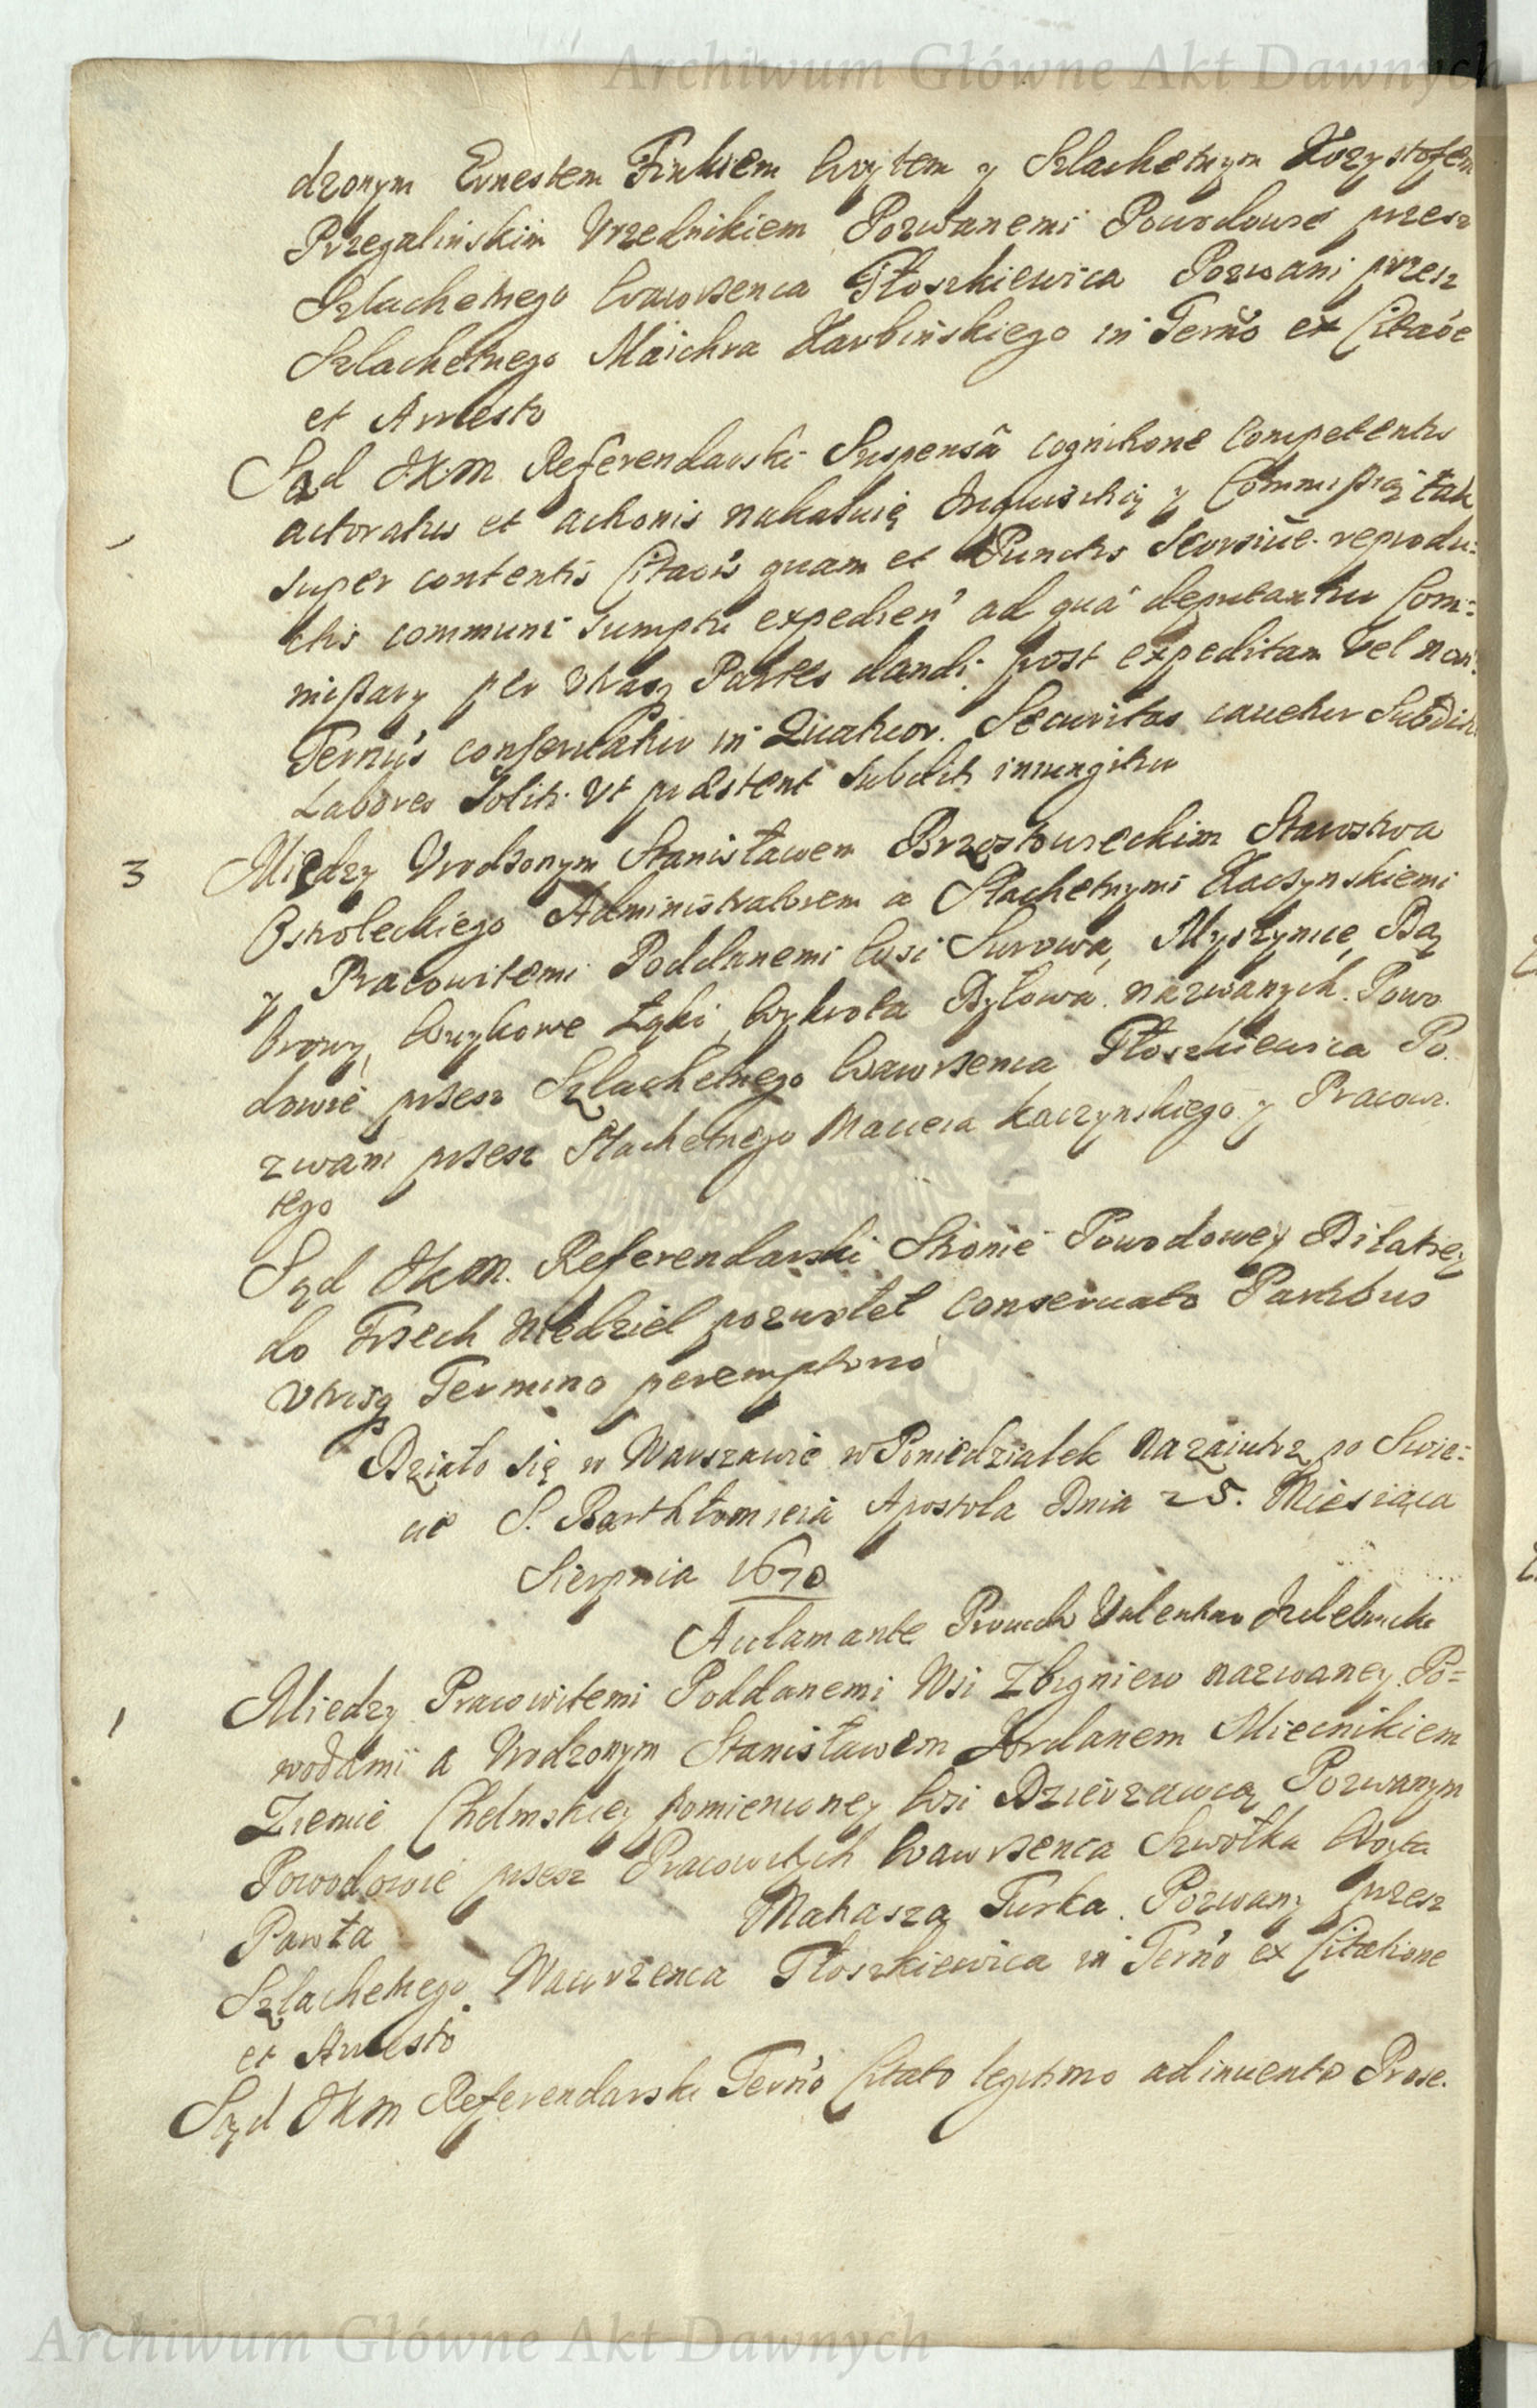 Archiwum Główne Akt Dawnych
dzonym Ernestem Finkiem Woytem y Szlachetnym Krzysztofem
Przegalinskim Vrzednikiem Pozwanemi Powodowie przez
Szlachetnego Wawrzenca Tłoszkiewica Pozwani przez
Szlachetnego Maichra Karbinskiego in Termo ex Citaoe
et Arresto
Sąd JKM Referendarski Suspensa cognitione Competentis
actoratus et actionis nakazuię Inquisitią y Commissią tak
super contentis Citaois quam et Punctis Seorsiue reprodu=
ctis communi sumptu expedien ad qua deputantur Com=
missary per Utrasq Partes dandi, post expeditam vel non
Termus conservatur in Quatuor. Securitas cauetur Subdit.
Labores Soliti Vt praestent Subditi iniungitur
3 Miedzy Vrodzonym Stanisławem Brzostowieckim Starostwa
Ostroleckiego Administratorem a Slachetnymi Kaczynskiemi
y Pracowitemi Poddanemi Wsi Surowa, Myszynie, Bą
browy, Wuykowe Łąki, Wykrota Dyłowa nazwanych. Powo
dowie przez Szlachetnego Wawrzenca Tłoszkiewica Po
zwani przez Slachetnego Macieia Kaczynskiego y Pracowi
tego
Sąd JKM. Referendarski Stronie Powodowey Dilatiey
do Trzech niedziel pozwolił conseruato Partibus
Vtrisq Termino peremptorio
Działo się w Warszawie w Poniedziałek nazaiutrz po Swie=
cie S. Barthłomieia Apostola Dnia 25. Miesiąca
Sierpnia 1670
Aclamante Prouido Valentino
1 Miedzy Pracowitemi Poddanemi Wsi Zbigniew nazwaney Po=
wodami a Vrodzonym Stanisławem Jordanem Miecnikiem
Ziemie Chelmskiey pomienioney Wsi Dzierzawcą Pozwanym
Powodowie przez Pracowitych Wawrzenca Szwołka Woyta
Pawła Matiasza Turka. Pozwany przez
Szlachetnego Wawrzenca Tłoszkiewica in Termo ex Citatione
et Arresto
Sąd JKM Referendarski Termo Citato legitimo adinuento Prose.
Archiwum Główne Akt Dawnych